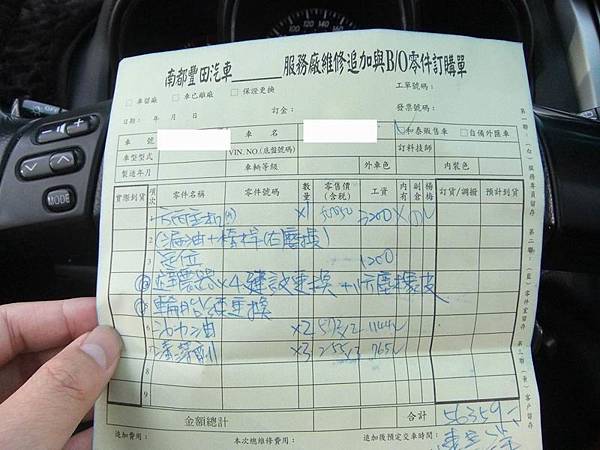 南都豐田汽車______服務廠維修追加與B/O零件訂購單
□ 車留廠 □ 車已離廠 □ 保證更換 工單號碼：
日期： 年 月 日 訂金： 發票號碼：
車 號 車 名 □和泰販售車 □自備外匯車
車型型式 VIN. NO.(底盤號碼) 訂料技師
製造年月 車輛等級 外車色 內裝色
實際到貨 項次 零件名稱 零件號碼 數量 零售價(含稅) 工資 內有 副倉 楊梅 訂貨/調撥 預計到貨
1 ×1 3200
2 (漏油+
3 定位 1200
避震器×4 建議更換 +防塵橡皮
輪胎 建議更換
6 動力油 ×2 572/2 1144
7 清潔劑 ×3 255/3 765
8
9
金額總計 合計 56359
追加費用： 本次總維修費用： 追加後預定交車時間：
第一聯：(白)服務專員留存
第二聯：(藍)零件室留存
第三聯：(黃)客戶留存
MODE
80 100 120 140 160